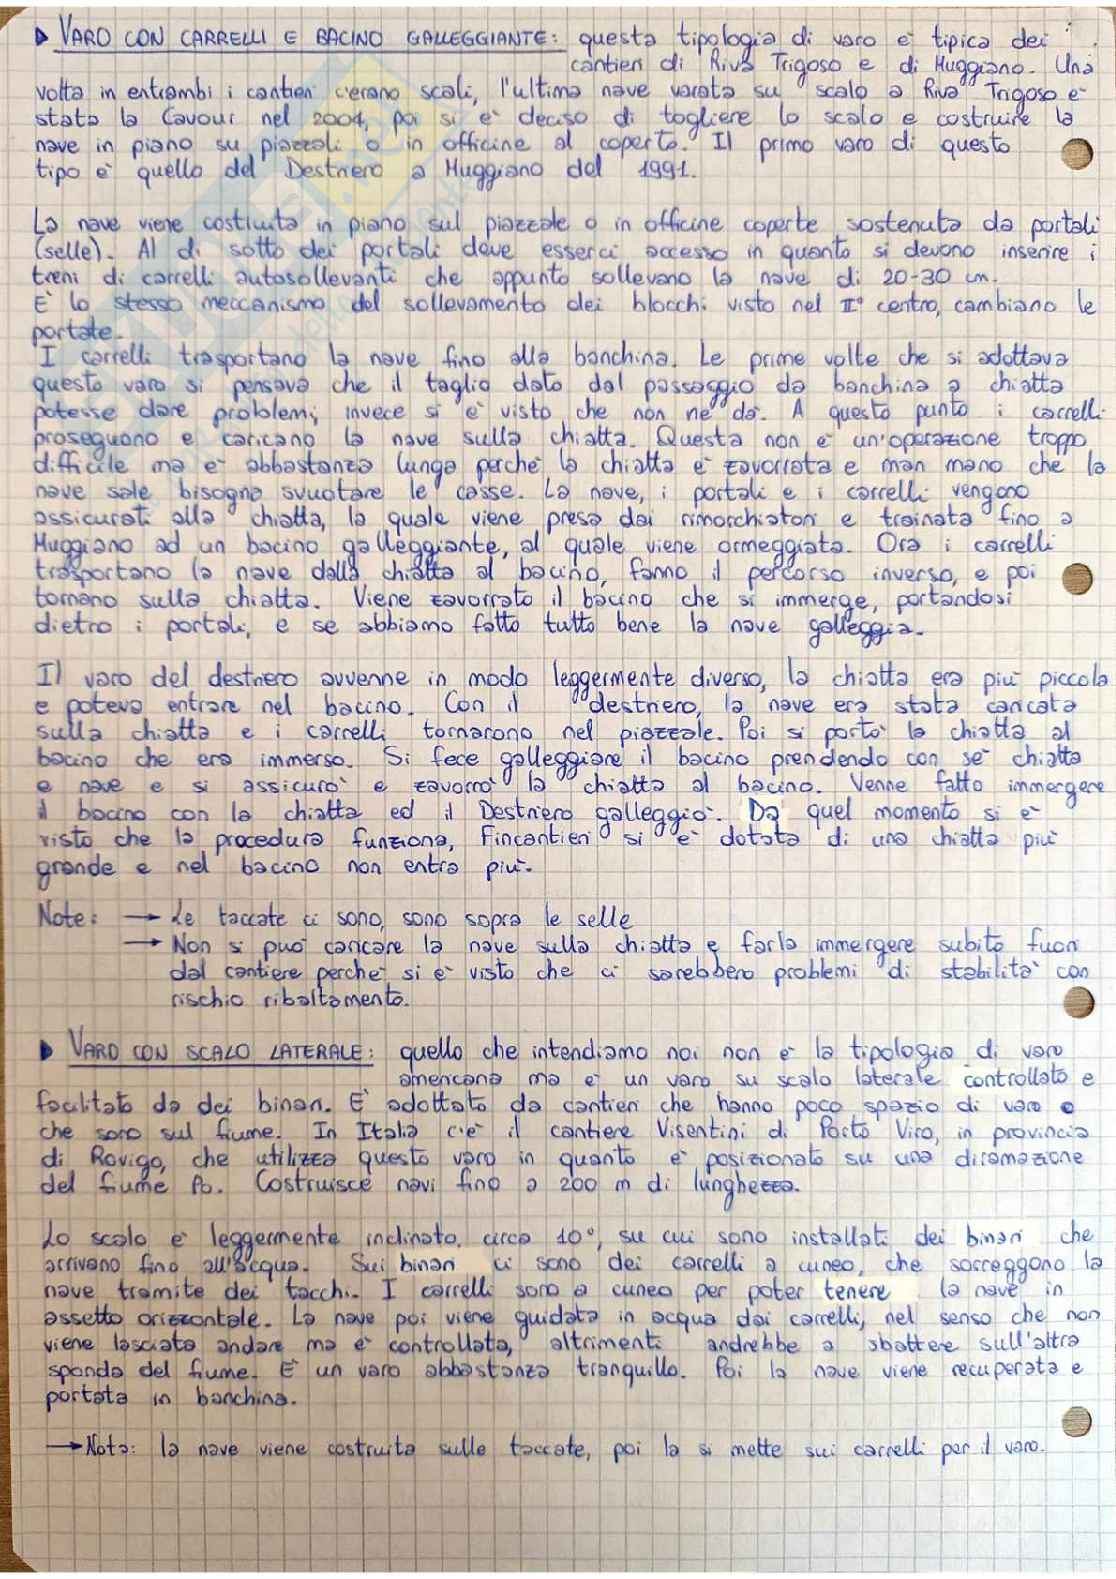 ▶ VARO CON CARRELLI E BACINO GALLEGGIANTE: questa tipologia di varo è tipica dei
cantieri di Riva Trigoso e di Muggiano. Una
volta in entrambi i cantieri c'erano scali, l'ultima nave varata su scalo a Riva Trigoso è
stata la Cavour nel 2004, poi si è deciso di togliere lo scalo e costruire la
nave in piano su piazzali o in officine al coperto. Il primo varo di questo
tipo è quello del Destriero a Muggiano del 1991.
La nave viene costruita in piano sul piazzale o in officine coperte sostenuta da portali
(selle). Al di sotto dei portali deve esserci accesso in quanto si devono inserire i
treni di carrelli autosollevanti che appunto sollevano la nave di 20-30 cm.
È lo stesso meccanismo del sollevamento dei blocchi visto nel II° centro, cambiano le
portate.
I carrelli trasportano la nave fino alla banchina. Le prime volte che si adottava
questo varo si pensava che il taglio dato dal passaggio da banchina a chiatta
potesse dare problemi, invece si è visto che non ne dà. A questo punto i carrelli
proseguono e caricano la nave sulla chiatta. Questa non è un'operazione troppo
difficile ma è abbastanza lunga perché la chiatta è zavorrata e man mano che la
nave sale bisogna svuotare le casse. La nave, i portali e i carrelli vengono
assicurati alla chiatta, la quale viene presa dai rimorchiatori e trainata fino a
Muggiano ad un bacino galleggiante, al quale viene ormeggiata. Ora i carrelli
trasportano la nave dalla chiatta al bacino, fanno il percorso inverso, e poi
tornano sulla chiatta. Viene zavorrato il bacino che si immerge, portandosi
dietro i portali, e se abbiamo fatto tutto bene la nave galleggia.
Il varo del destriero avvenne in modo leggermente diverso, la chiatta era più piccola
e poteva entrare nel bacino. Con il destriero, la nave era stata caricata
sulla chiatta e i carrelli tornarono nel piazzale. Poi si portò la chiatta al
bacino che era immerso. Si fece galleggiare il bacino prendendo con sé chiatta
e nave e si assicurò e zavorrò la chiatta al bacino. Venne fatto immergere
il bacino con la chiatta ed il Destriero galleggiò. Da quel momento si è
visto che la procedura funziona, Fincantieri si è dotata di una chiatta più
grande e nel bacino non entra più.
Note: → Le taccate ci sono, sono sopra le selle
→ Non si può caricare la nave sulla chiatta e farla immergere subito fuori
dal cantiere perché si è visto che ci sarebbero problemi di stabilità con
rischio ribaltamento.
▶ VARO CON SCALO LATERALE: quello che intendiamo noi non è la tipologia di varo
americana ma è un varo su scalo laterale controllato e
facilitato da dei binari. È adottato da cantieri che hanno poco spazio di varo e
che sono sul fiume. In Italia c'è il cantiere Visentini di Porto Viro, in provincia
di Rovigo, che utilizza questo varo in quanto è posizionato su una diramazione
del fiume Po. Costruisce navi fino a 200 m di lunghezza.
Lo scalo è leggermente inclinato, circa 10°, su cui sono installati dei binari che
arrivano fino all'acqua. Sui binari ci sono dei carrelli a cuneo, che sorreggono la
nave tramite dei tacchi. I carrelli sono a cuneo per poter tenere la nave in
assetto orizzontale. La nave poi viene guidata in acqua dai carrelli, nel senso che non
viene lasciata andare ma è controllata, altrimenti andrebbe a sbattere sull'altra
sponda del fiume. È un varo abbastanza tranquillo. Poi la nave viene recuperata e
portata in banchina.
→ Nota: la nave viene costruita sulle taccate, poi la si mette sui carrelli per il varo.